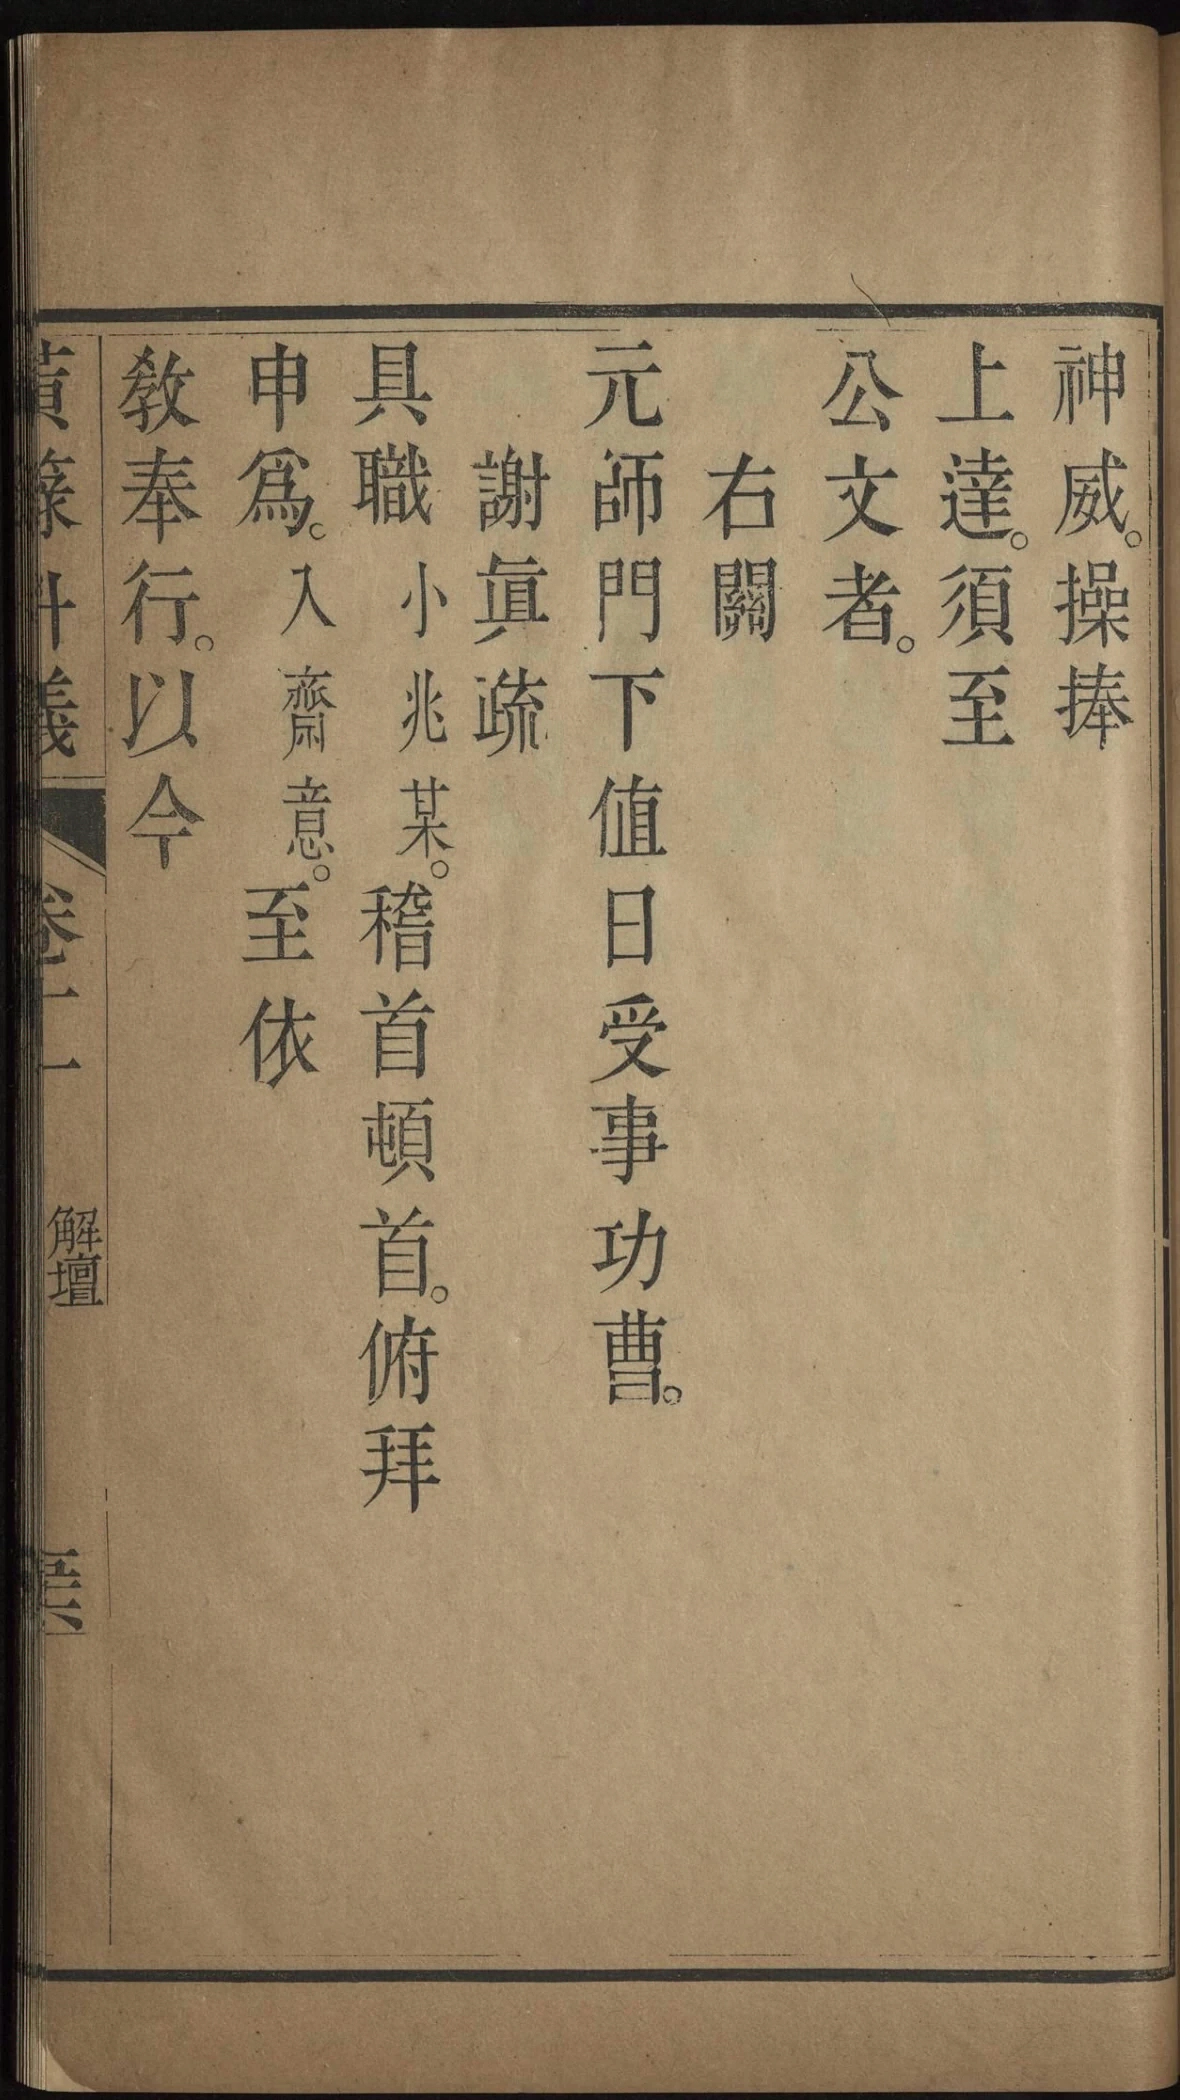 神威。操捧
上達。須至
公文者。
右關
元師門下值日受事功曹。
謝眞疏
具職小兆某。稽首頓首。俯拜
申爲。入齋意。至依
教奉行。以今
黃籙科儀
卷十一
解壇